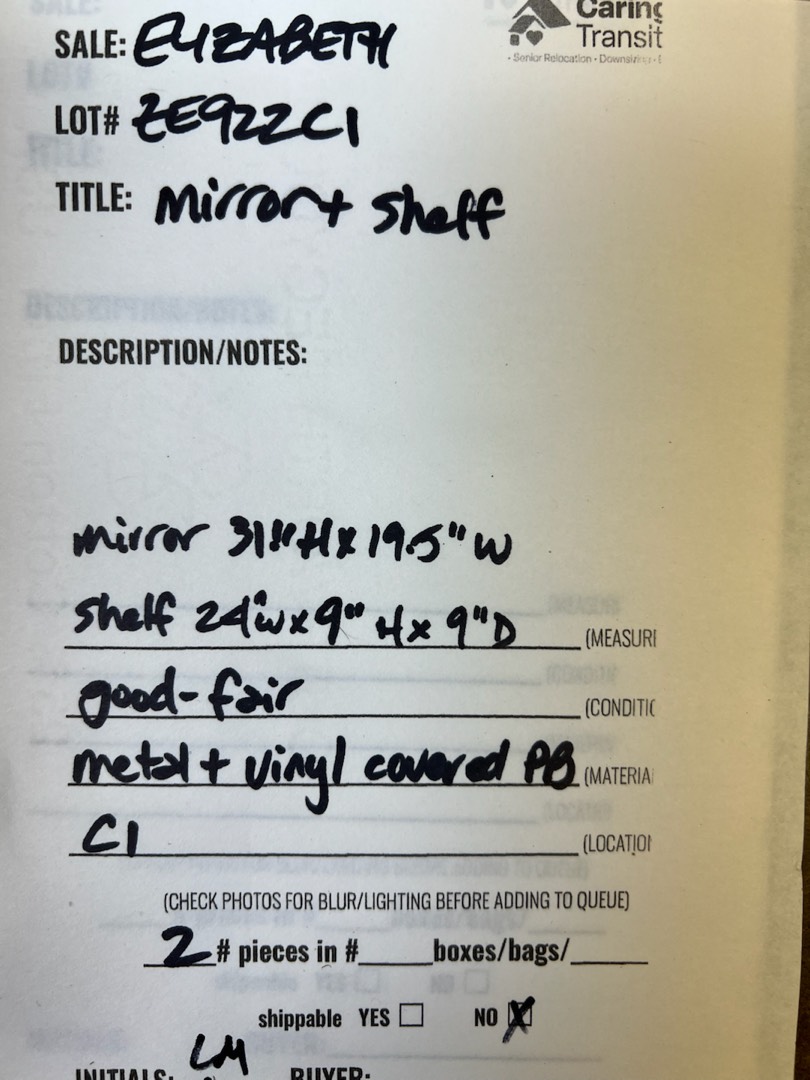 Caring
Transit
• Senior Relocation • Downsizing •
SALE: ELIZABETH
LOT# ZE922C1
TITLE: Mirror + Shelf
DESCRIPTION/NOTES:
mirror 31" H x 19.5" W
Shelf 24" W x 9" H x 9" D (MEASURE
good - fair (CONDITIO
metal + vinyl covered PB (MATERIA
C1 (LOCATION
(CHECK PHOTOS FOR BLUR/LIGHTING BEFORE ADDING TO QUEUE)
2 # pieces in #____boxes/bags/____
shippable YES ☐ NO ☒
INITIALS: LM BUYER: